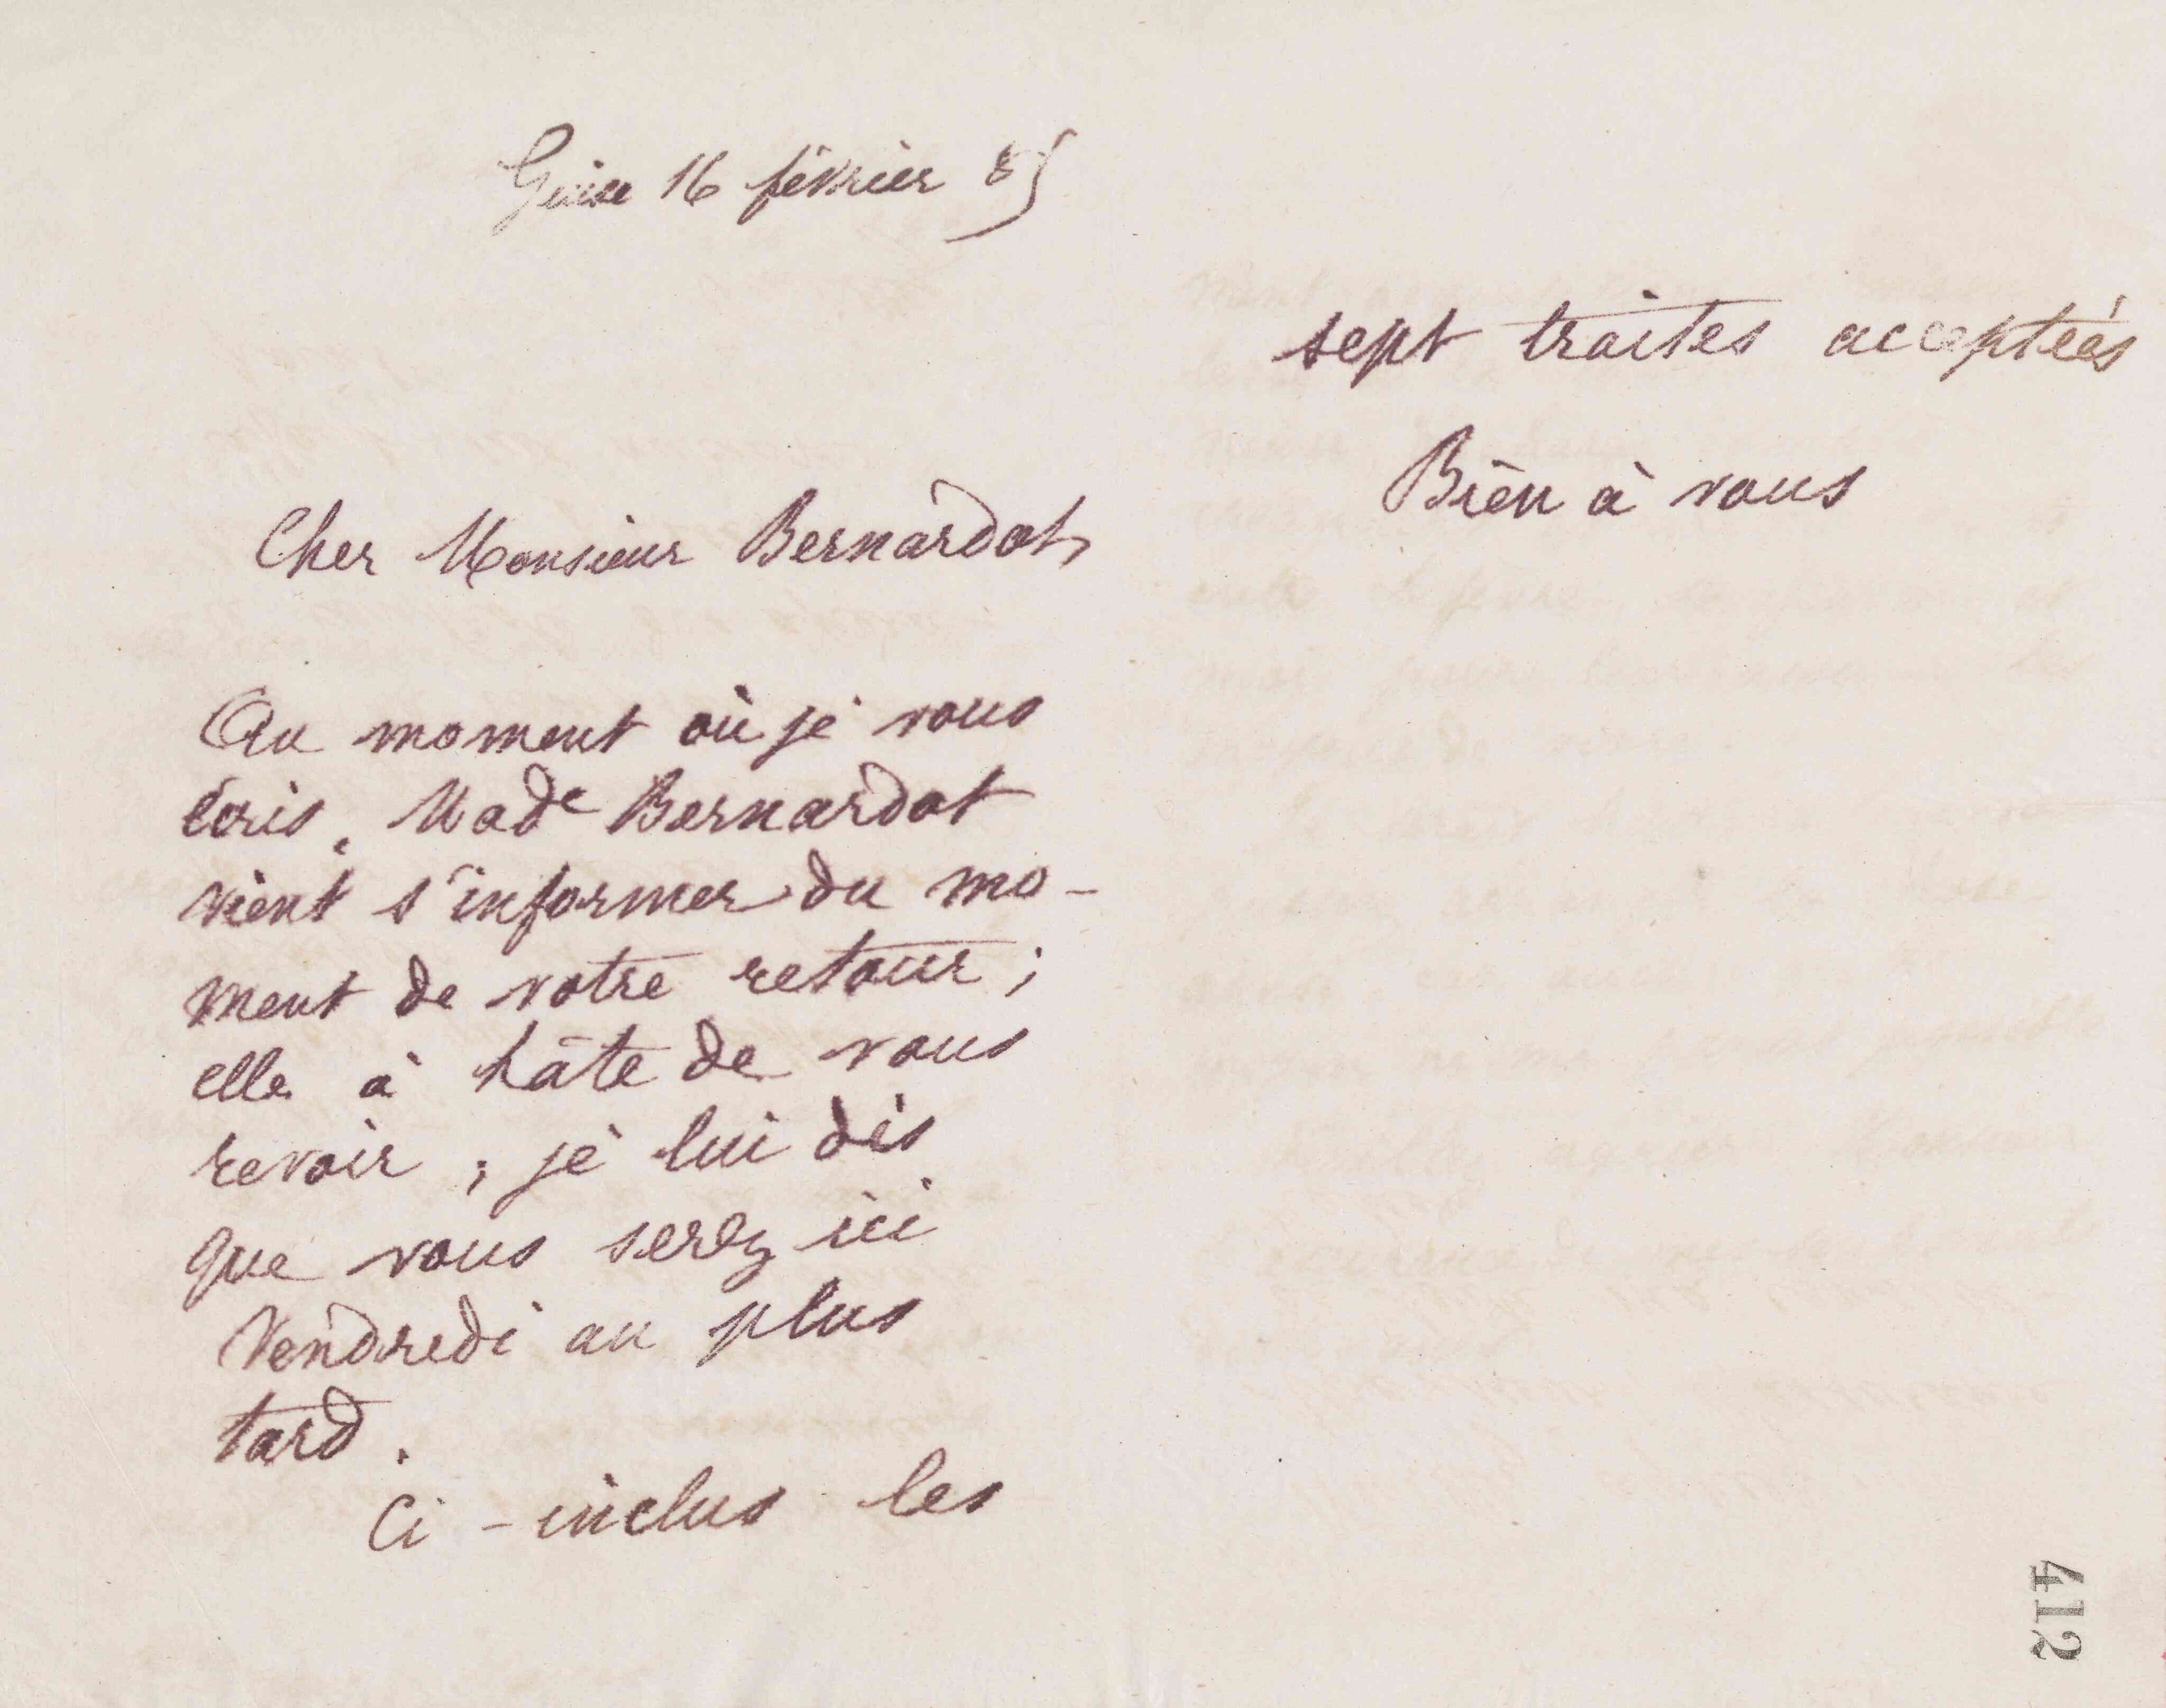 Guise 16 février 85
Cher Monsieur Bernardot,
Au moment où je vous
écris, Made Bernardot
vient s'informer du mo-
ment de votre retour ;
elle à hâte de vous
revoir ; je lui dis
que vous serez ici
Vendredi au plus
tard.
Ci-inclus les
sept traites acceptées
Bien à vous
412